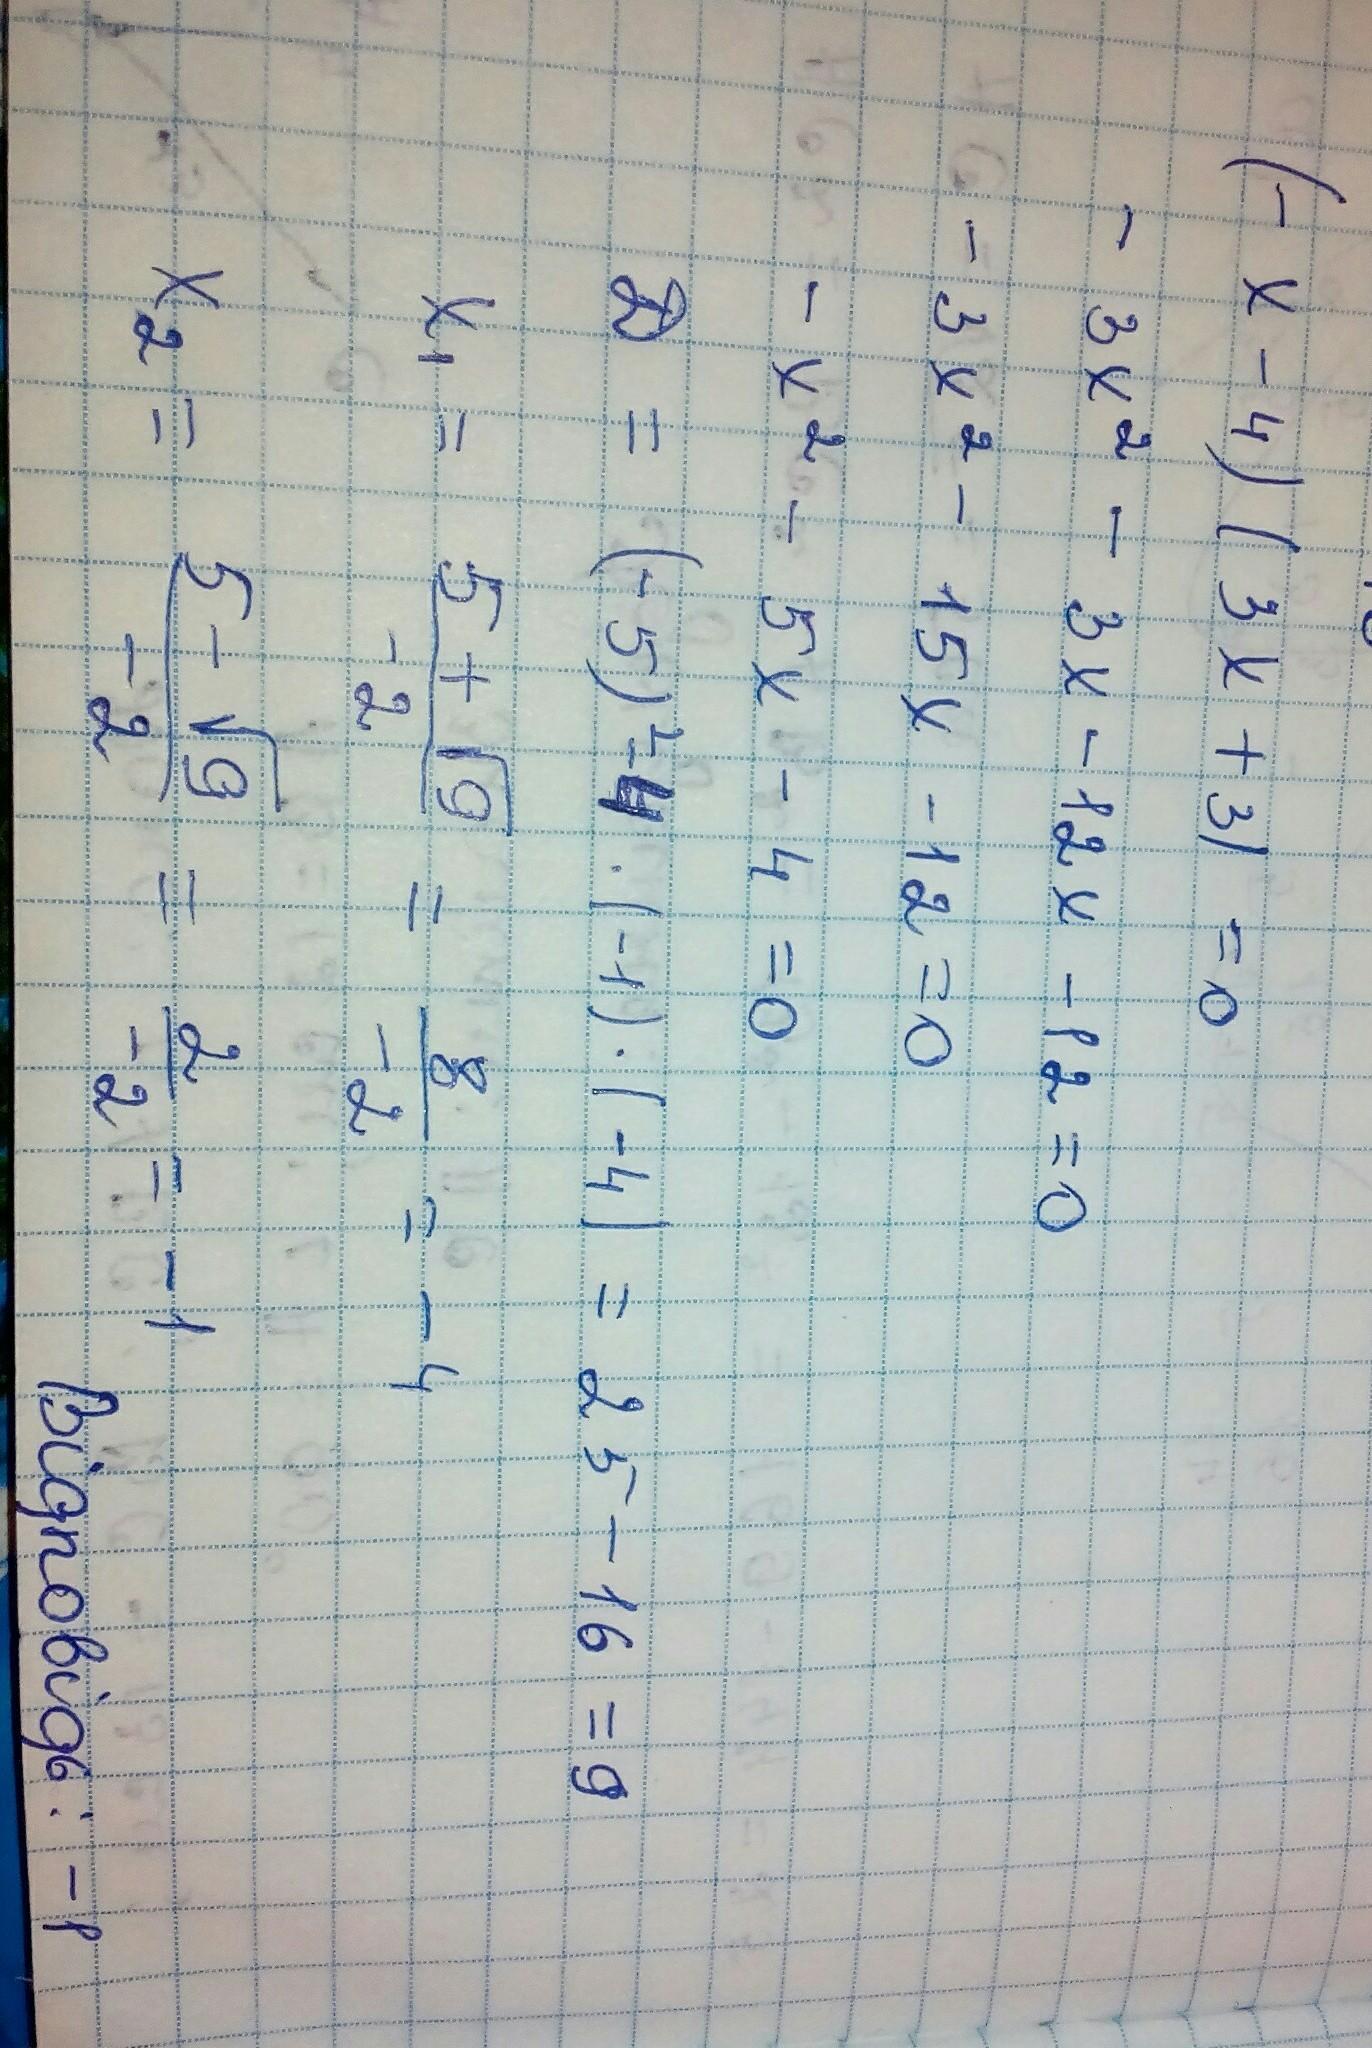 (-x-4)(3x+3)=0
-3x²-3x-12x-12=0
-3x²-15x-12=0
-x²-5x-4=0
D=(-5)²-4·(-1)·(-4)=25-16=9
x₁=(5+√9)/(-2)=8/(-2)=-4
x₂=(5-√9)/(-2)=2/(-2)=-1
Відповідь: -1